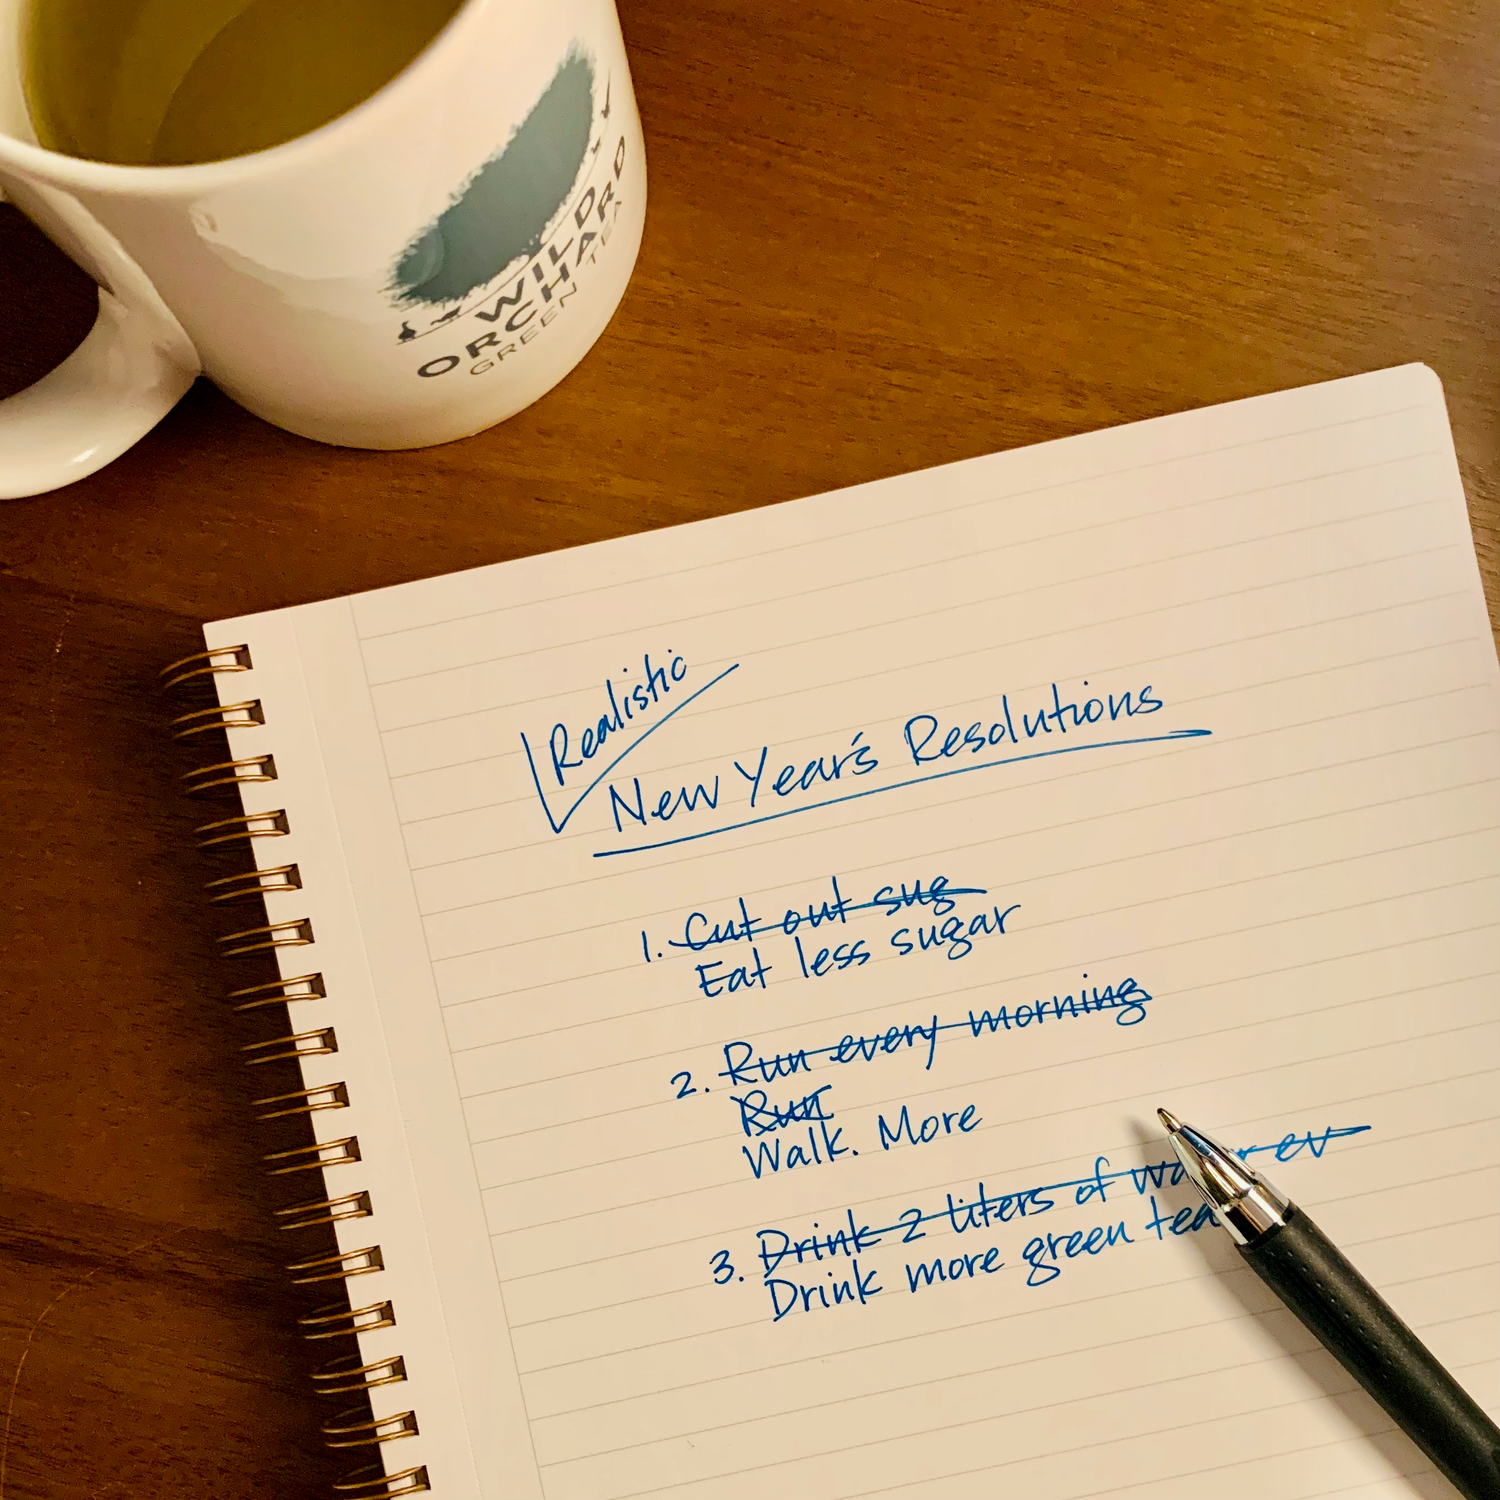 WILD
ORCHARD
GREEN TEA
Realistic
New Year's Resolutions
1. Cut out sug
Eat less sugar
2. Run every morning
Run
Walk. More
3. Drink 2 liters of ev
Drink more green tea